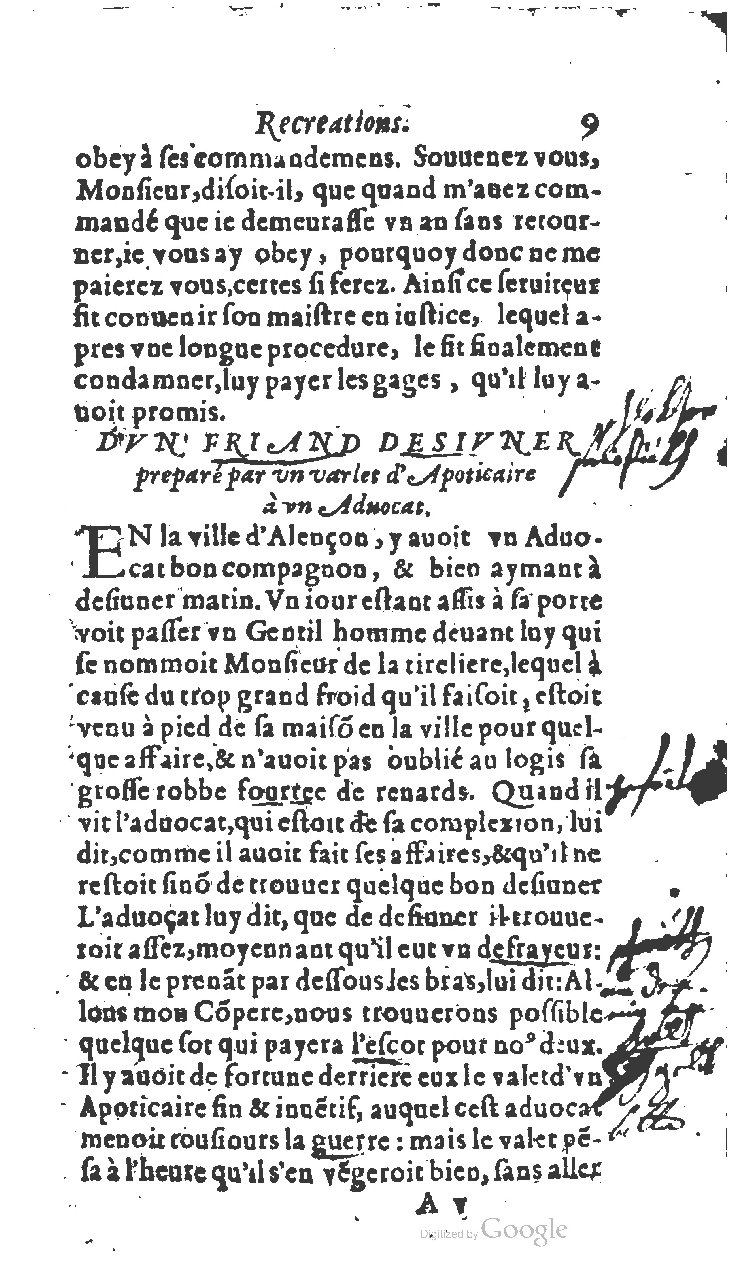 Recreations. 9
obey à ſes commandemens. Souuenez vous,
Monſieur, diſoit-il, que quand m'auez com-
mandé que ie demeuraſſe vn an ſans retour-
ner, ie vous ay obey, pourquoy donc ne me
paierez vous, certes ſi ferez. Ainſi ce ſeruiteur
fit conuenir ſon maiſtre en iuſtice, lequel a-
pres vne longue procedure, le fit finalement
condamner, luy payer les gages, qu'il luy a-
uoit promis.
D'VN FRIAND DESIVNER
preparé par vn varlet d'Apoticaire
à vn Aduocat.
EN la ville d'Alençon, y auoit vn Aduo-
cat bon compagnon, & bien aymant à
deſiuner matin. Vn iour eſtant aſſis à ſa porte
voit paſſer vn Gentil homme deuant luy qui
ſe nommoit Monſieur de la tireliere, lequel à
cauſe du trop grand froid qu'il faiſoit, eſtoit
venu à pied de ſa maiſõ en la ville pour quel-
que affaire, & n'auoit pas oublié au logis ſa
groſſe robbe fourree de renards. Quand il
vit l'aduocat, qui eſtoit de ſa complexion, lui
dit, comme il auoit fait ſes affaires, & qu'il ne
reſtoit ſinõ de trouuer quelque bon deſiuner
L'aduocat luy dit, que de deſiuner il trouue-
roit aſſez, moyennant qu'il eut vn defrayeur:
& en le prenãt par deſſous les bras, lui dit: Al-
lons mon Cõpere, nous trouuerons poſſible
quelque ſot qui payera l'eſcot pour noꝰ deux.
Il y auoit de fortune derriere eux le valet d'vn
Apoticaire fin & inuẽtif, auquel ceſt aduocat
menoit touſiours la guerre: mais le valet pẽ-
ſa à l'heure qu'il s'en vẽgeroit bien, ſans aller
A v
Digitized by Google